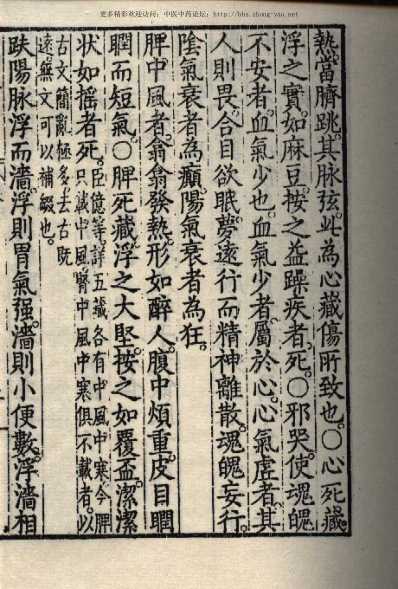 更多精彩欢迎访问：中医中药论坛：http://bbs.zhong-yao.net
熱。當臍跳。其脉弦。此為心藏傷所致也。○心死藏。
浮之實。如麻豆。按之益躁疾者。死。○邪哭。使魂魄
不安者。血氣少也。血氣少者。屬於心。心氣虛者。其
人則畏。合目欲眠。夢遠行而精神離散。魂魄妄行。
陰氣衰者為癲。陽氣衰者為狂。
脾中風者。翕翕發熱。形如醉人。腹中煩重。皮目瞤
瞤而短氣。○脾死藏。浮之大堅。按之如覆盃潔潔
状如摇者死。臣億等。詳五藏各有中風中寒。今脾
只載中風。腎中風中寒俱不載者。以
古文簡亂極多。去古既
遠。無文可以補綴也。
趺陽脉浮而濇。浮則胃氣强。濇則小便數。浮濇相